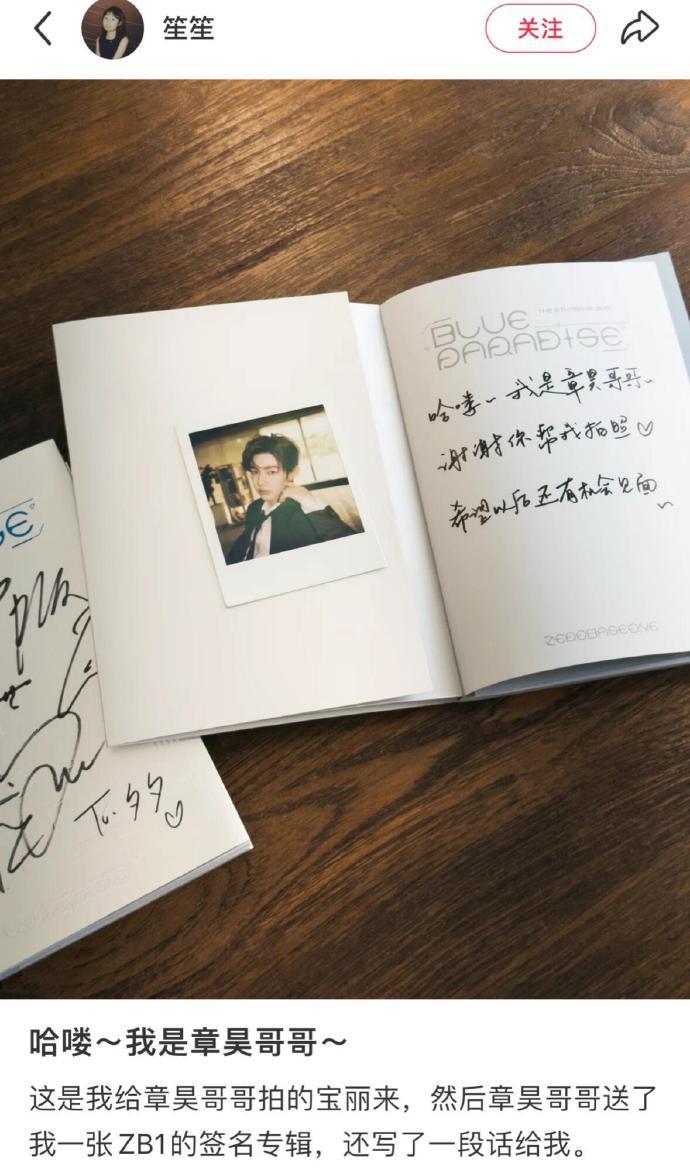 笙笙
关注
BLUE
PARADISE
哈喽~我是章昊哥哥~
谢谢你帮我拍照♡
希望以后还有机会见面~
ZEROBASEONE
SE
To.夕夕♡
哈喽～我是章昊哥哥～
这是我给章昊哥哥拍的宝丽来，然后章昊哥哥送了
我一张ZB1的签名专辑，还写了一段话给我。